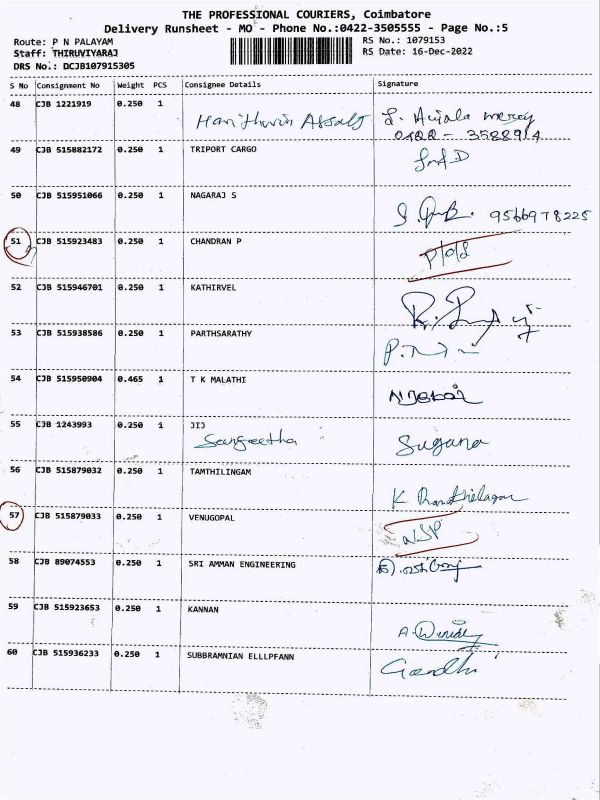 THE PROFESSIONAL COURIERS, Coimbatore
Delivery Runsheet - MO - Phone No.:0422-3505555 - Page No.:5
Route: P N PALAYAM
Staff: THIRUVIYARAJ
DRS No.: DCJB107915305
RS No.: 1079153
RS Date: 16-Dec-2022
S No Consignment No Weight PCS Consignee Details Signature
48 CJB 1221919 0.250 1
49 CJB 515882172 0.250 1 TRIPORT CARGO
50 CJB 515951066 0.250 1 NAGARAJ S
9566978225
51 CJB 515923483 0.250 1 CHANDRAN P
52 CJB 515946701 0.250 1 KATHIRVEL
53 CJB 515938586 0.250 1 PARTHSARATHY
54 CJB 515950904 0.465 1 T K MALATHI
55 CJB 1243993 0.250 1 JIJ
Sangeetha Sugana
56 CJB 515879032 0.250 1 TAMTHILINGAM
57 CJB 515879033 0.250 1 VENUGOPAL
NSP
58 CJB 89074553 0.250 1 SRI AMMAN ENGINEERING
59 CJB 515923653 0.250 1 KANNAN
60 CJB 515936233 0.250 1 SUBBRAMNIAN ELLLPFANN
Gandhi